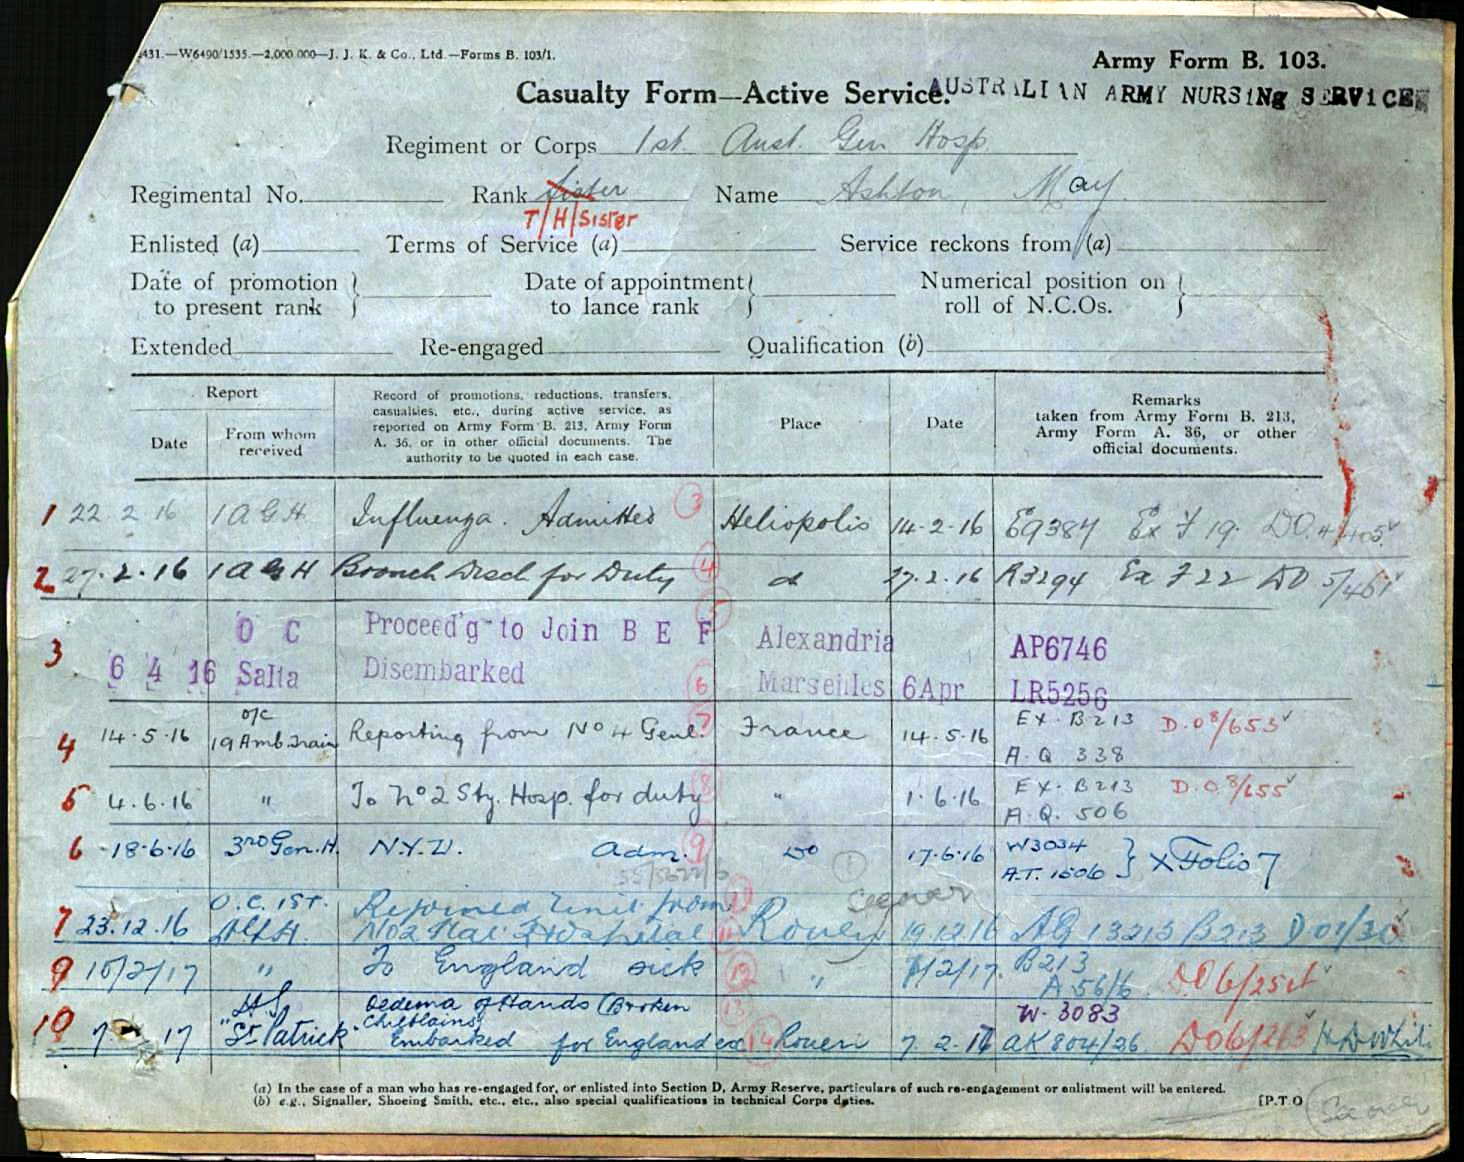 431.—W6490/1535.—2,000,000—J. J. K. & Co., Ltd.—Forms B. 103/1.
Army Form B. 103.
Casualty Form—Active Service.
AUSTRALIAN ARMY NURSING SERVICE
Regiment or Corps 1st Aust. Gen Hosp.
Regimental No. Rank Sister Name Ashton, May.
T/H/Sister
Enlisted (a) Terms of Service (a) Service reckons from (a)
Date of promotion to present rank } Date of appointment to lance rank } Numerical position on roll of N.C.Os. }
Extended Re-engaged Qualification (b)
Report
Date
From whom received
Record of promotions, reductions, transfers,
casualties, etc., during active service, as
reported on Army Form B. 213, Army Form
A. 36, or in other official documents. The
authority to be quoted in each case.
Place
Date
Remarks
taken from Army Form B. 213,
Army Form A. 36, or other
official documents.
1 22 2 16 1 A G H Influenza. Admitted 3 Heliopolis 14-2-16 E9384 Ex F 19.
2 27.2.16 1 A G H Disch for Duty 4 do 27.2.16 R3294 Ex F 22 DO
3 O C Proceed'g to Join B E F 5 Alexandria AP6746
6 4 16 Salta Disembarked 6 Marseilles 6Apr LR5256
4 14.5.16 O/C 19 Amb. Train Reporting from No 4 Genl. 7 France 14.5.16 EX. B213 D.O 8/653
A.Q 338
5 4.6.16 " To No 2 Sty. Hosp. for duty 8 " 1.6.16 EX. B213 D.O. 8/655
A.Q. 506
6 18.6.16 3rd Gen. H. N.Y.D. Adm. 9 Do 17.6.16 W3034
A.T. 1606 } X Folio 7
See over
7 23.12.16 O.C. 1st. Rejoined Unit from
No 2 Hospital 11 Rouen 19.12.16 AG 13213 B213
9 10/2/17 " To England sick 12 " 1/2/17. B213
A 56/6 DO 6/251
10 7 17 H.S. "St Patrick" Oedema of Hands (Broken 13
Chilblains)
Embarked for England ex 14 Rouen 7.2.17 W.3083
AK 804/26 DO6/263
(a) In the case of a man who has re-engaged for, or enlisted into Section D, Army Reserve, particulars of such re-engagement or enlistment will be entered.
(b) e.g., Signaller, Shoeing Smith, etc., etc., also special qualifications in technical Corps duties.
[P.T.O
See over